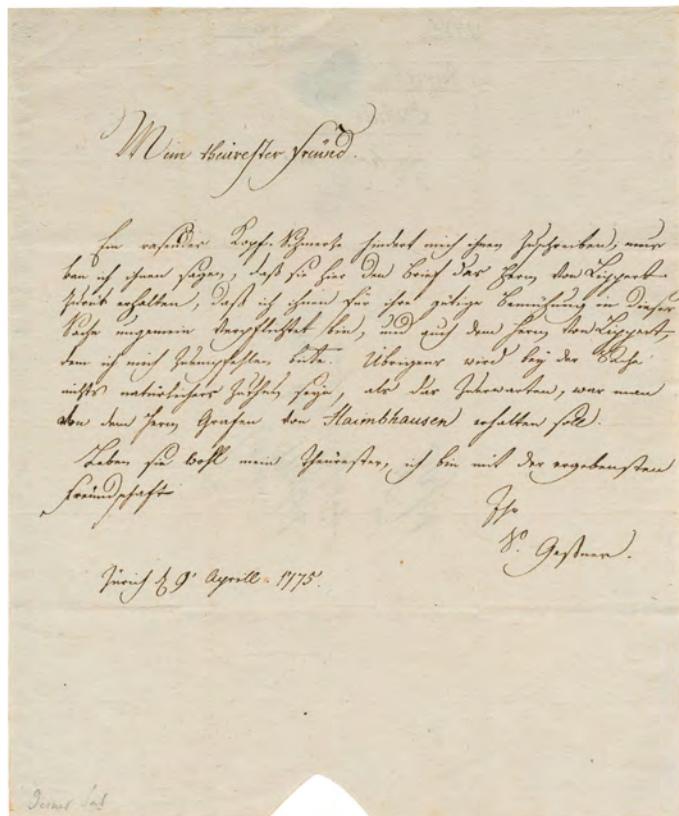 Mein theürester Freünd.
Ein rasender Kopf-Schmertz hindert mich ihnen zuschreiben, nur
kan ich ihnen sagen, daß sie hier den Brief des Herrn von Lippert
zurük erhalten, daß ich ihnen für ihre gütige Bemühung in dieser
Sache ungemein verpflichtet bin, und auch dem Herrn von Lippert,
dem ich mich zuempfehlen bite. Übrigens wird bey der Sache
nichts natürlichers zuthun seyn, als das zuerwarten, was man
von dem Herrn Grafen von Haimbhausen erhalten soll.
Leben sie wohl mein Theürester, ich bin mit der ergebensten
Freündschaft
Ihr
S. Geßner.
Zürich d 9. Aprill. 1775.